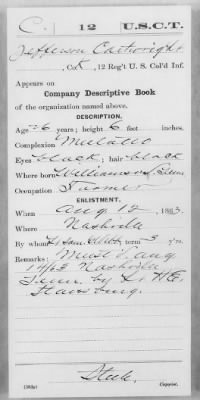 C. 12 U.S.C.T.
Jefferson Cartwright
, Co. K, 12 Reg't U. S. Col'd Inf.
Appears on
Company Descriptive Book
of the organization named above.
DESCRIPTION.
Age 26 years; height 6 feet inches.
Complexion Mulatto
Eyes black; hair black
Where born Williamson Tenn
Occupation Farmer
ENLISTMENT.
When Aug 12, 1863.
Where Nashville
By whom term 3 y'rs.
Remarks: Must. Aug
Nashville
Tenn by Lt H.E.
(383g) Copyist.